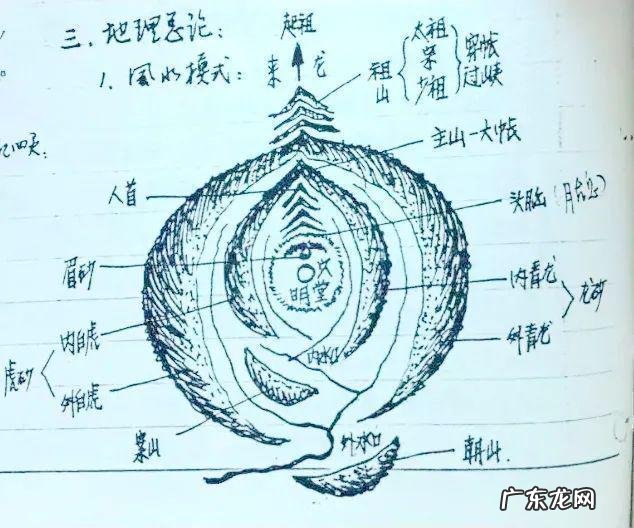 三、地理总论：
1、风水模式：
起祖
来龙
祖山
太祖
宗
少祖
穿帐
过峡
主山—大帐
人首
头脑
眉砂
穴
明堂
内青龙
外青龙
龙砂
内白虎
外白虎
虎砂
内水口
外水口
案山
朝山
广东龙网